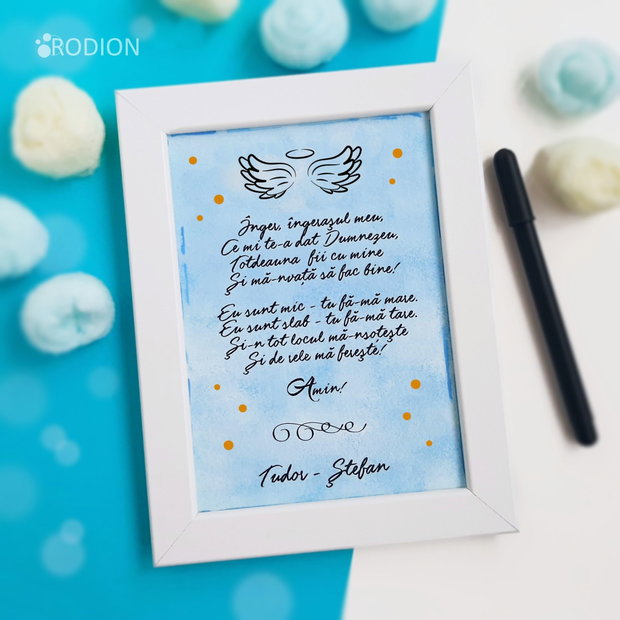 RODION
Înger, îngerașul meu,
Ce mi te-a dat Dumnezeu,
Totdeauna fii cu mine
Și mă-nvață să fac bine!
Eu sunt mic - tu fă-mă mare.
Eu sunt slab - tu fă-mă tare.
Și-n tot locul mă-nsoțește
Și de rele mă ferește!
Amin!
Tudor - Ștefan